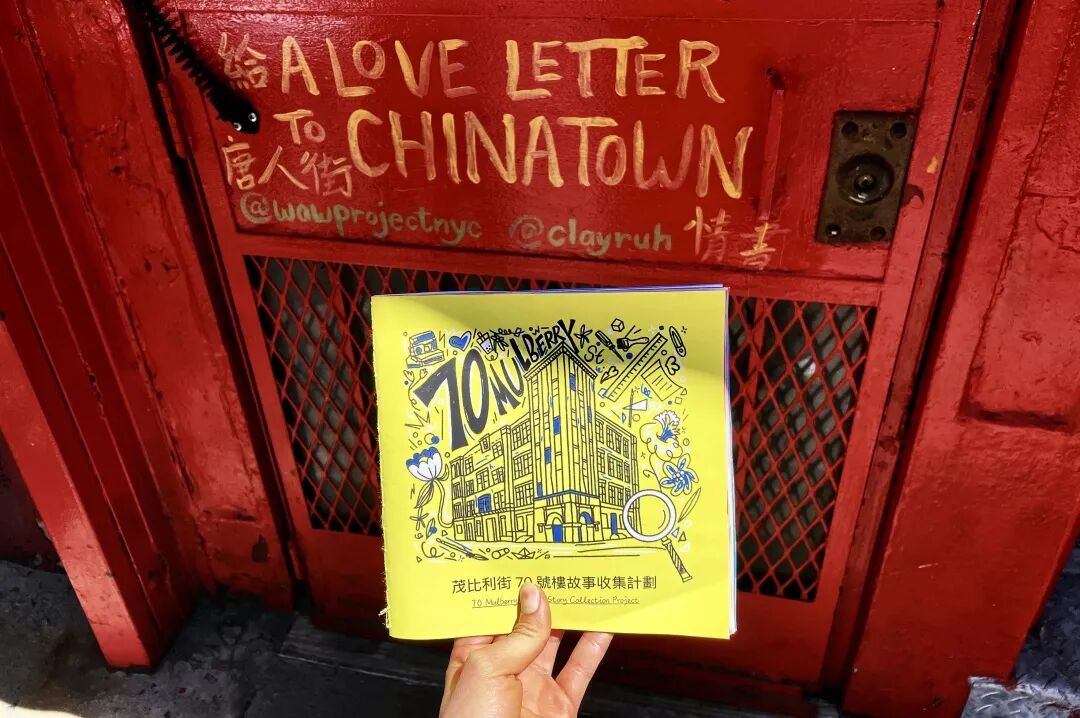 給 A LOVE LETTER
TO CHINATOWN
唐人街
@wowprojectnyc @clayruh 情書
70 MULBERRY St
茂比利街 70 號樓故事收集計劃
70 Mulberry Story Collection Project